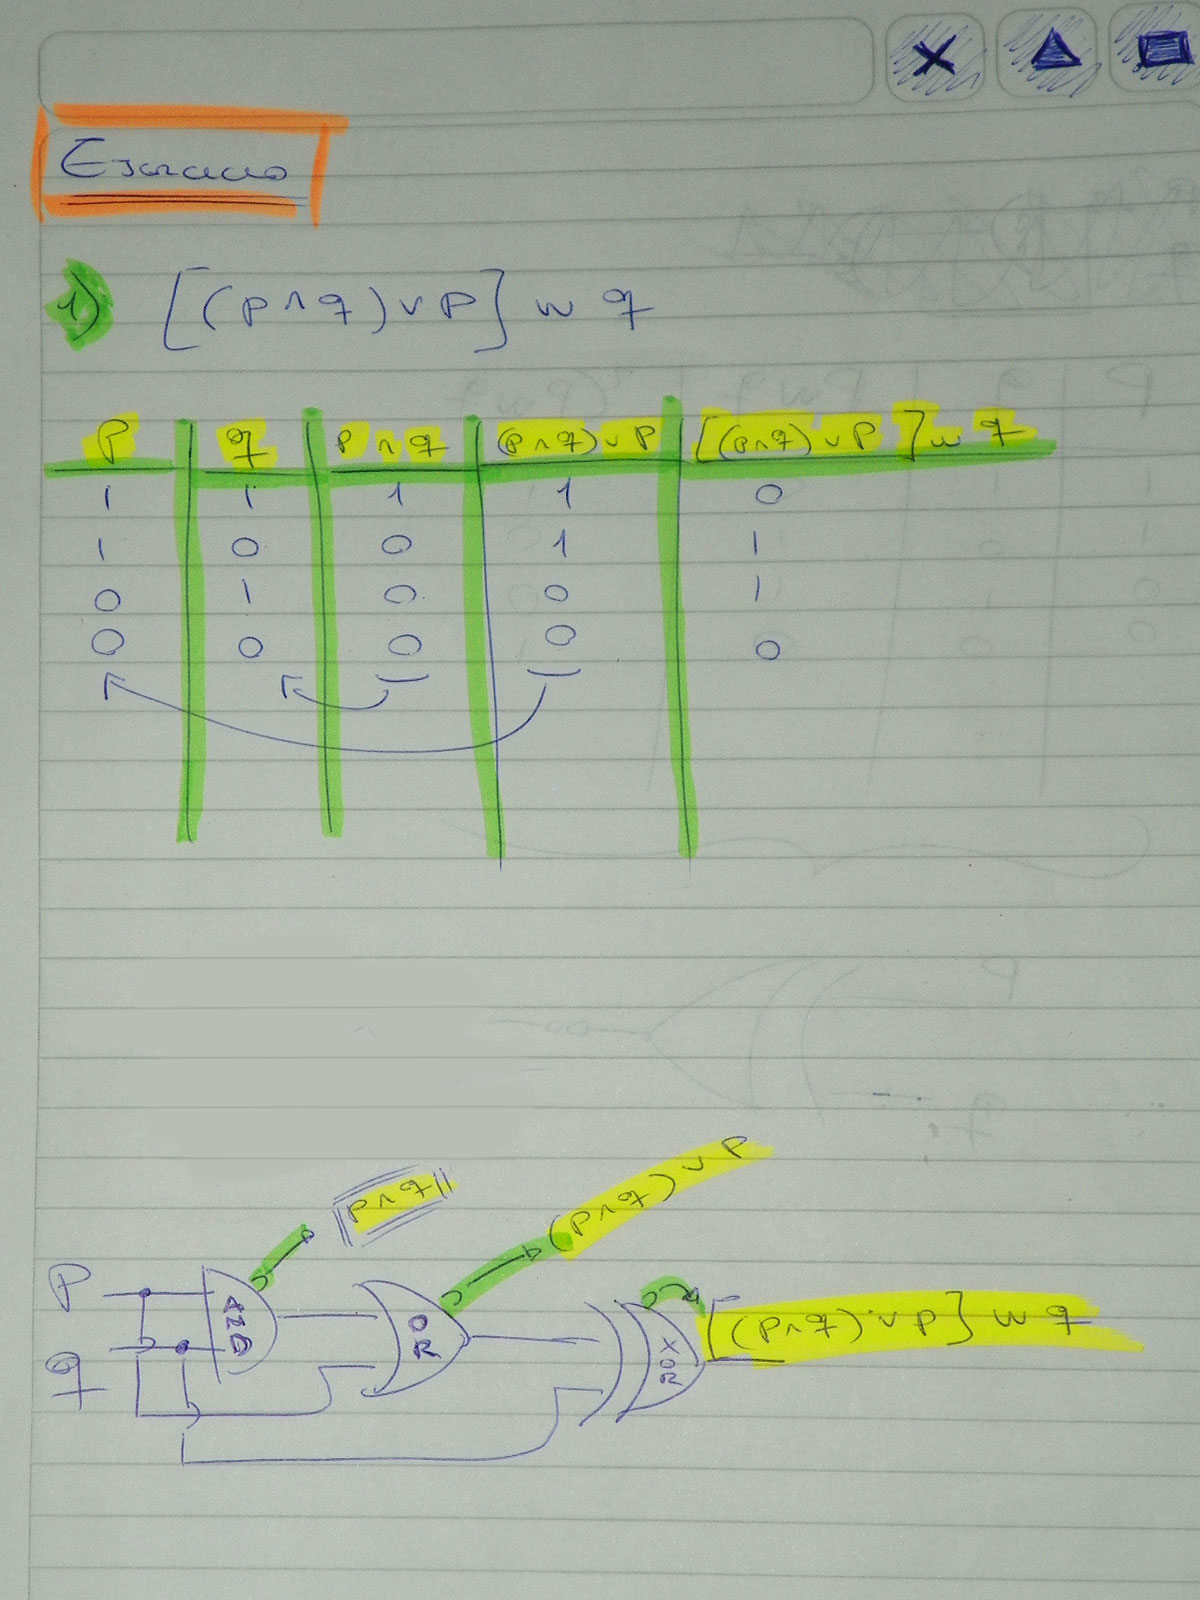 Esercizio
1) [(p ∧ q) ∨ p] w q
p q p ∧ q (p ∧ q) ∨ p [(p ∧ q) ∨ p] w q
1 1 1 1 0
1 0 0 1 1
0 1 0 0 1
0 0 0 0 0
p ∧ q
(p ∧ q) ∨ p
p
AND
OR
XOR
[(p ∧ q) ∨ p] w q
q